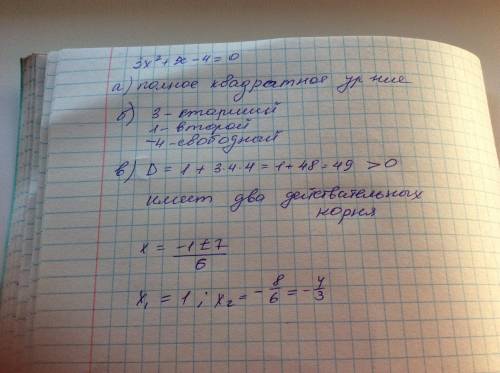 3x²+x-4=0
а) полное квадратное ур-ние
б) 3-старший
1-второй
-4-свободный
в) D = 1 + 3·4·4 = 1+48 = 49 > 0
имеет два действительных
корня
x = \frac{-1±7}{6}
x₁ = 1 ; x₂ = -\frac{8}{6} = -\frac{4}{3}